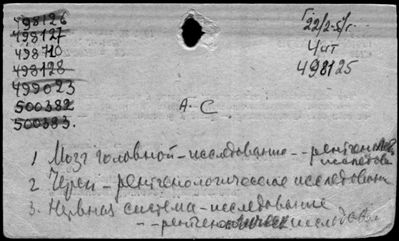 498126
498127
498710
498128
499023
500382
500383.
22/2-51г.
Чит
498125
А-С
1 Мозг головной - исследование - рентген
исследов
2 Череп - рентгенологическое исследован
3. Нервная система - исследование
- рентген исследов